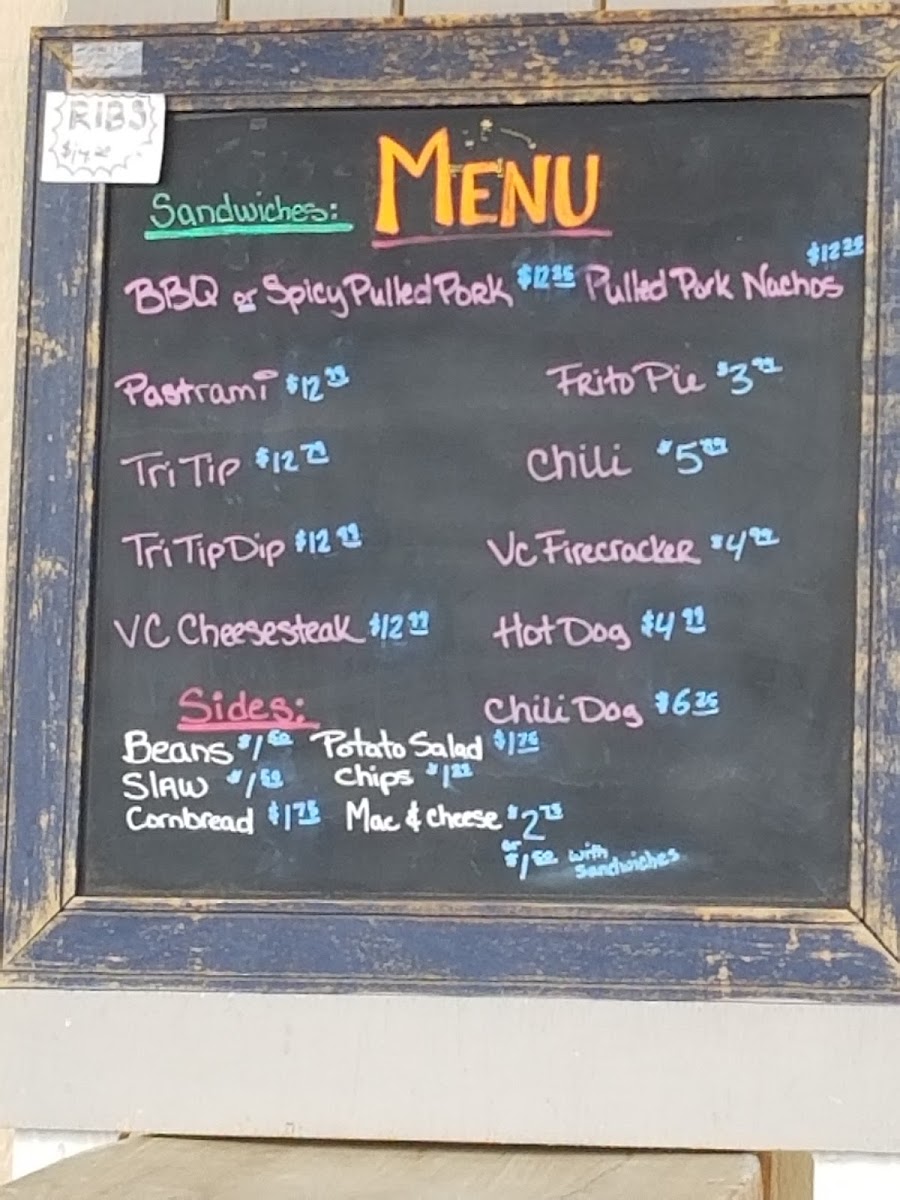 RIBS
MENU
Sandwiches:
BBQ or Spicy Pulled Pork $12.25 Pulled Pork Nachos $12.25
Pastrami $12.99 Frito Pie $3.99
Tri Tip $12.79 Chili $5.99
Tri Tip Dip $12.99 VC Firecracker $4.99
VC Cheesesteak $12.99 Hot Dog $4.99
Sides: Chili Dog $6.25
Beans $1.50 Potato Salad $1.75
SLAW $1.50 Chips
Cornbread $1.75 Mac & cheese $2.75
or
$1.50 with
Sandwiches